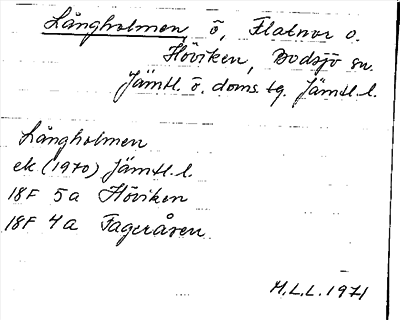 Långholmen, ö, Flatnor o.
Höviken, Bodsjö sn.
Jämtl. ö. doms. tg. Jämtl. l.
Långholmen
ek. (1970) Jämtl. l.
18F 5a Höviken
18F 4a Fageråsen
M.L.L. 1971